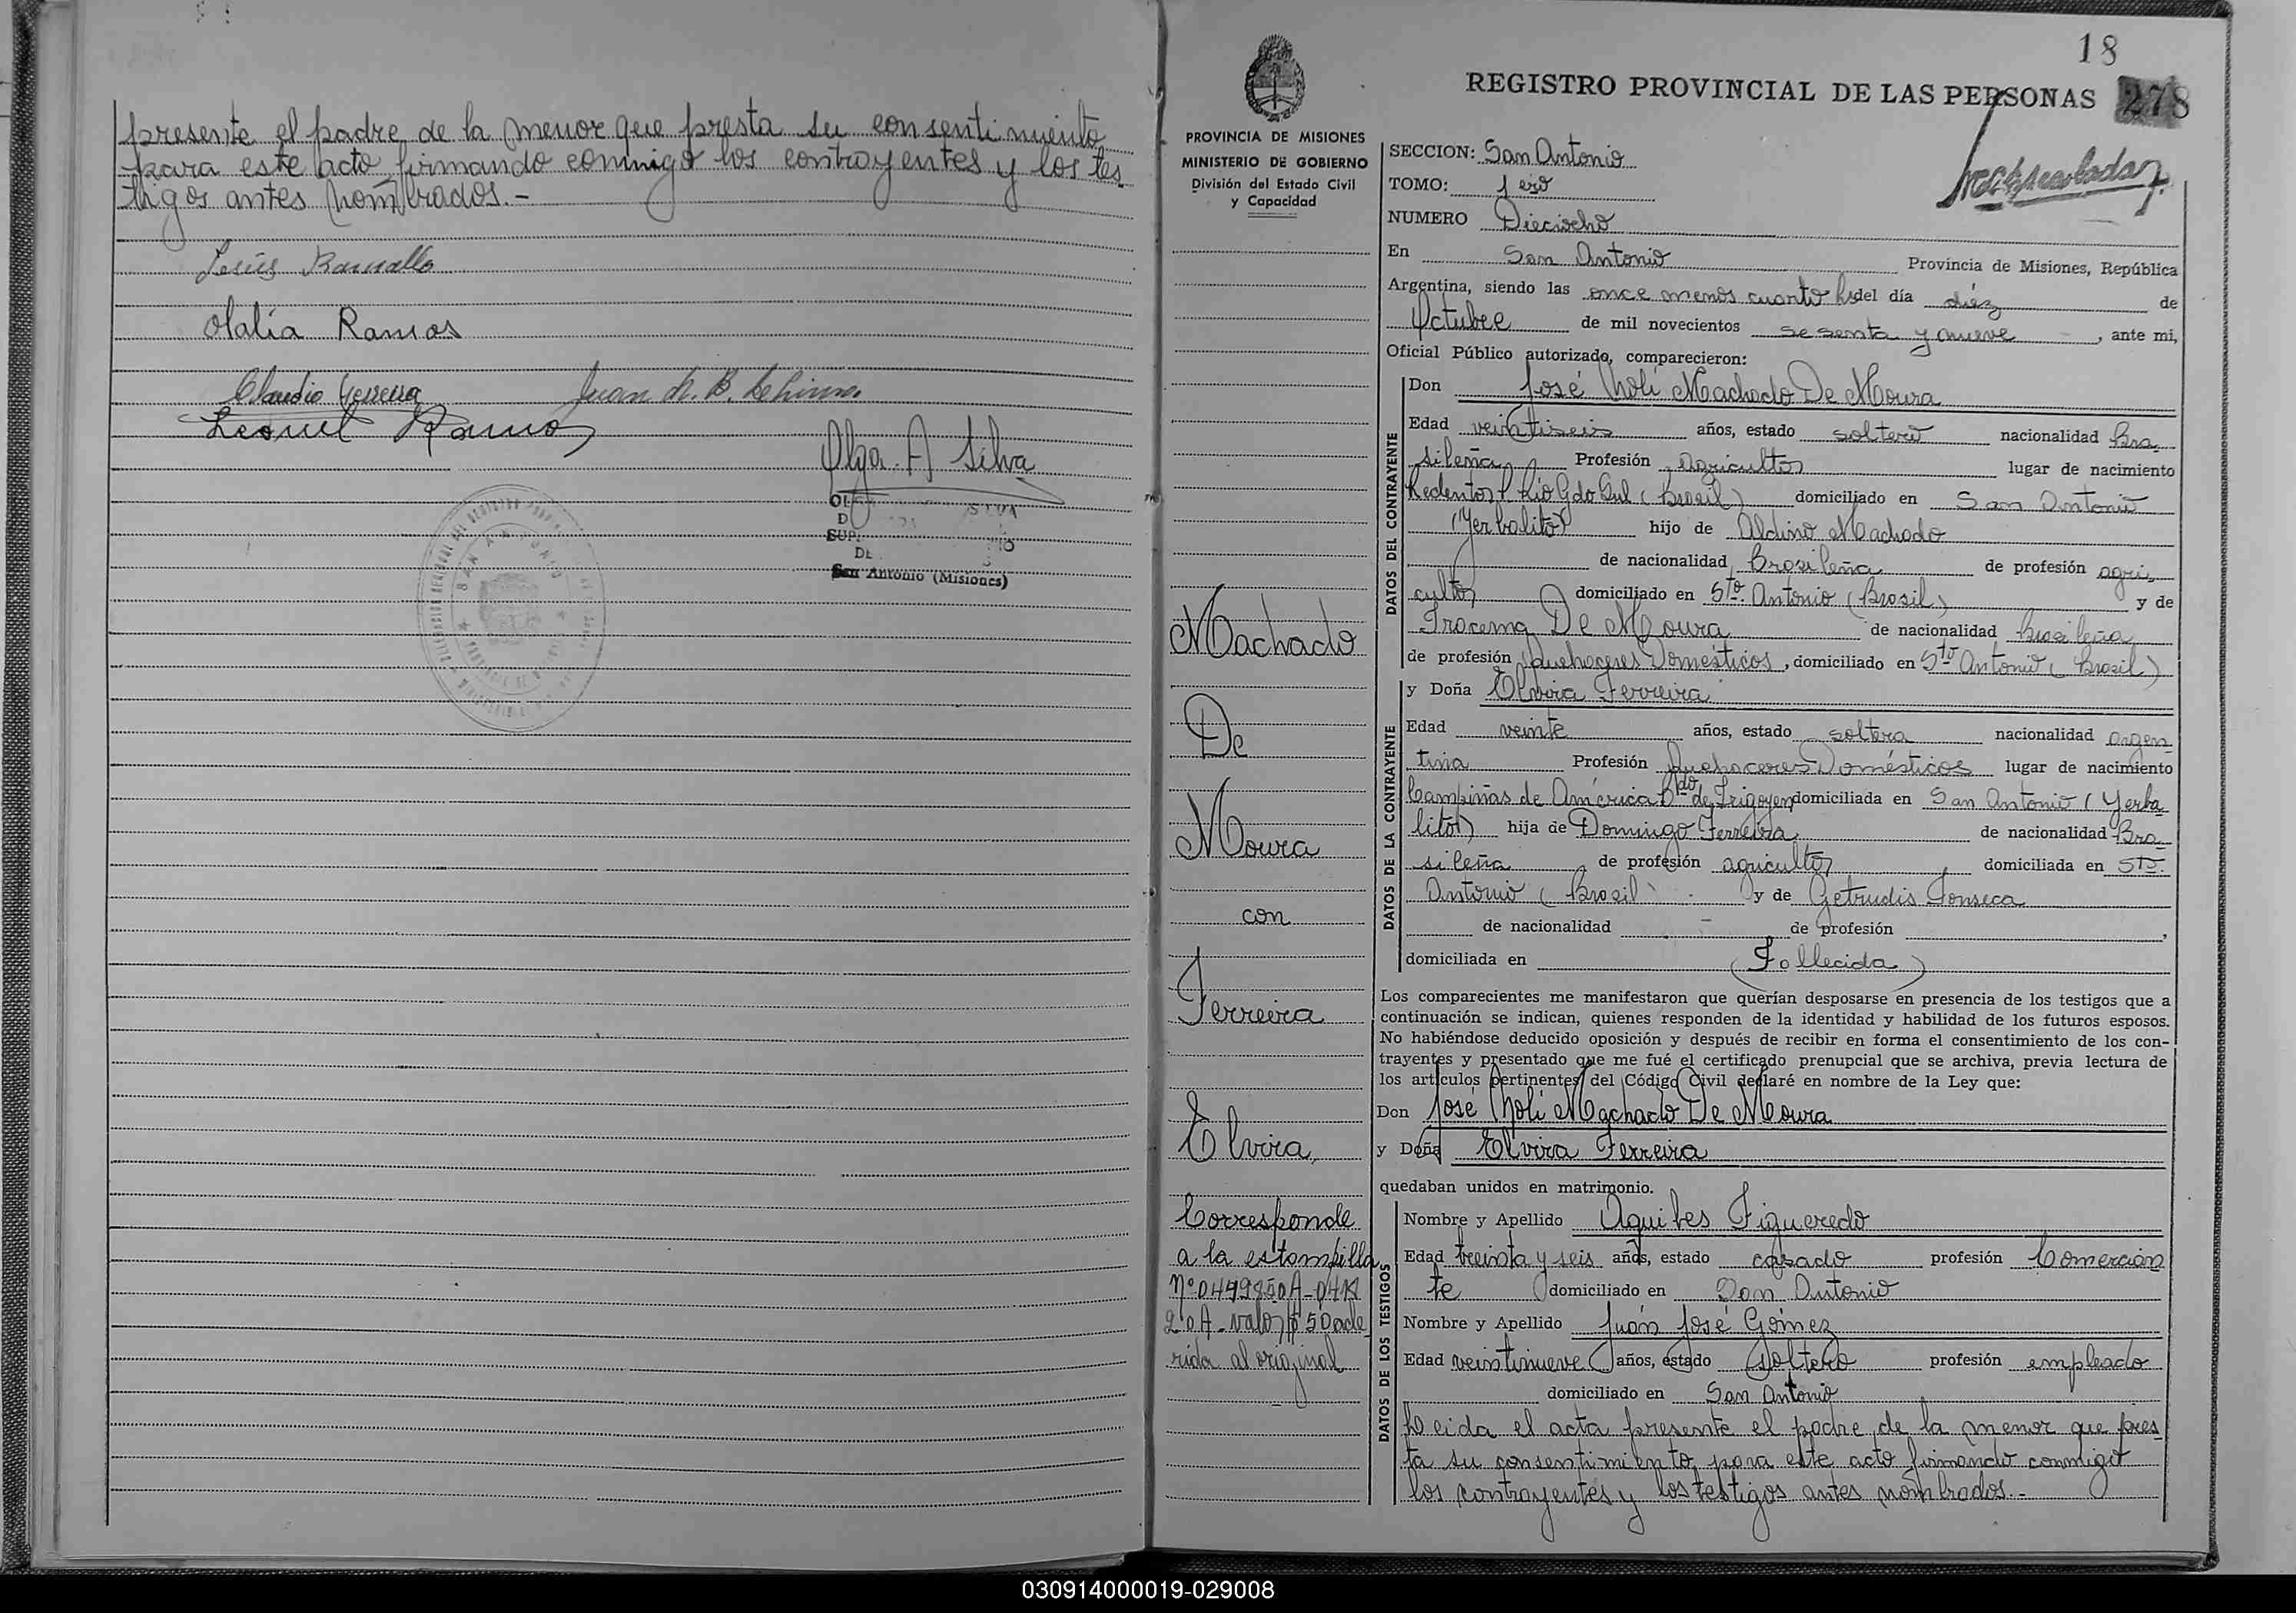 presente el padre de la menor que presta su consentimiento
para este acto, firmando conmigo los contrayentes y los tes
tigos antes nombrados.-
Jesús Ramallo
Olalia Ramos
Claudio Ferreira Juan
Leonel Ramos
Olga A Silva
San Antonio (Misiones)
18
REGISTRO PROVINCIAL DE LAS PERSONAS 278
PROVINCIA DE MISIONES
MINISTERIO DE GOBIERNO
División del Estado Civil
y Capacidad
Machado
De
Moura
con
Ferreira
Elvira,
Corresponde
a la estampilla
valor $ 50 ade
rida al original
SECCION: San Antonio
TOMO: 1ero
NUMERO Dieciocho
En San Antonio Provincia de Misiones, República
Argentina, siendo las once menos cuarto hs del día diéz de
Octubre de mil novecientos sesenta y nueve, ante mi,
Oficial Público autorizado, comparecieron:
DATOS DEL CONTRAYENTE
Don José Choli Machado De Moura
Edad veintiseis años, estado soltero nacionalidad Bra
sileña Profesión Agricultor lugar de nacimiento
Redentor Rio Gdo Sul (Brasil) domiciliado en San Antonio
(Yerbalito) hijo de Aldino Machado
de nacionalidad Brasileña de profesión agri
cultor domiciliado en Sto. Antonio (Brasil) y de
Iracema De Moura de nacionalidad Brasileña
de profesión Quehaceres Domésticos, domiciliado en Sto Antonio (Brasil)
y Doña Elvira Ferreira
DATOS DE LA CONTRAYENTE
Edad veinte años, estado soltera nacionalidad argen
tina Profesión Quehaceres Domésticos lugar de nacimiento
Campiñas de América Bdo de Irigoyen domiciliada en San Antonio (Yerba
lito) hija de Domingo Ferreira de nacionalidad Bra
sileña de profesión agricultor domiciliada en Sto.
Antonio (Brasil) y de Getrudis Fonseca
de nacionalidad - de profesión ,
domiciliada en (Fallecida)
Los comparecientes me manifestaron que querían desposarse en presencia de los testigos que a
continuación se indican, quienes responden de la identidad y habilidad de los futuros esposos.
No habiéndose deducido oposición y después de recibir en forma el consentimiento de los con-
trayentes y presentado que me fué el certificado prenupcial que se archiva, previa lectura de
los artículos pertinentes del Código Civil declaré en nombre de la Ley que:
Don José Choli Machado De Moura
y Doña Elvira Ferreira
quedaban unidos en matrimonio.
DATOS DE LOS TESTIGOS
Nombre y Apellido Aquiles Figueredo
Edad treinta y seis años, estado casado profesión Comercian
te domiciliado en San Antonio
Nombre y Apellido Juán José Gómez
Edad veintinueve años, estado soltero profesión empleado
domiciliado en San Antonio
Leida el acta presente el padre de la menor que pres
ta su consentimiento, para este acto firmando conmigo
los contrayentes y los testigos antes nombrados.-
030914000019-029008